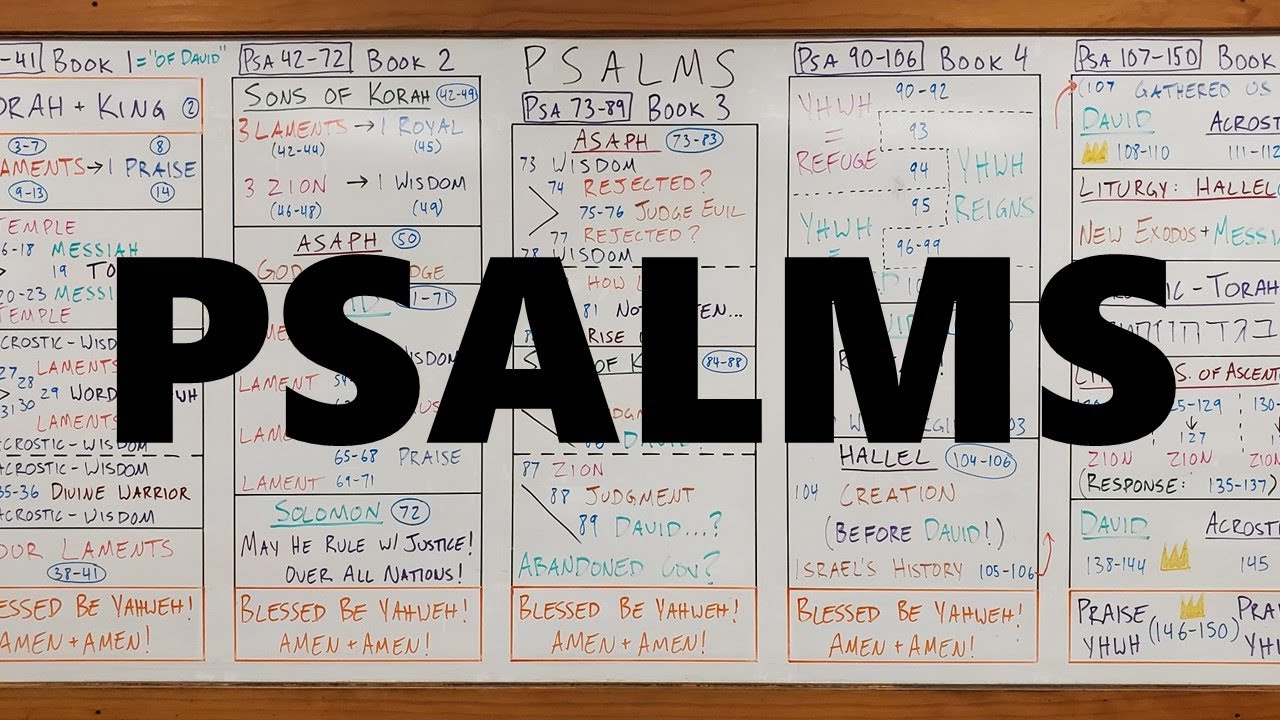 PSALMS
PSALMS
-41 BOOK 1 = "OF DAVID"
ORAH + KING 2
3-7 8
LAMENTS → 1 PRAISE
9-13 14
TEMPLE
6-18 MESSIAH
19 TO
20-23 MESSI
TEMPLE
ACROSTIC - WISD
27 LAMENTS
28
29 WORD WH
31 30
LAMENTS
ACROSTIC - WISDOM
ACROSTIC - WISDOM
35-36 DIVINE WARRIOR
ACROSTIC - WISDOM
OUR LAMENTS
38-41
LESSED BE YAHWEH!
AMEN + AMEN!
PSA 42-72 BOOK 2
SONS OF KORAH 42-49
3 LAMENTS → 1 ROYAL
(42-44) (45)
3 ZION → 1 WISDOM
(46-48) (49)
ASAPH 50
GOD DGE
1-71
LAMENT
65-68 PRAISE
LAMENT 69-71
SOLOMON 72
MAY HE RULE W/ JUSTICE!
OVER ALL NATIONS!
BLESSED BE YAHWEH!
AMEN + AMEN!
PSA 73-89 BOOK 3
ASAPH 73-83
73 WISDOM
74 REJECTED?
75-76 JUDGE EVIL
77 REJECTED?
78 WISDOM
HOW
81 NO TEN...
RISE
84-88
87 ZION
88 JUDGMENT
89 DAVID...?
ABANDONED COV?
BLESSED BE YAHWEH!
AMEN + AMEN!
PSA 90-106 BOOK 4
YHWH = REFUGE
90-92
93
94
YHWH REIGNS
95
YHWH =
96-99
03
HALLEL 104-106
104 CREATION
(BEFORE DAVID!)
ISRAEL'S HISTORY 105-106
BLESSED BE YAHWEH!
AMEN + AMEN!
PSA 107-150 BOOK
107 GATHERED US
DAVID ACROST
108-110 111-112
LITURGY: HALLEL
NEW EXODUS + MESSI
TIC - TORAH
S. OF ASCENT
25-129 130-
127
ZION ZION ZION
(RESPONSE: 135-137)
DAVID ACROSTI
138-144 145
PRAISE YHWH (146-150) PRA YH